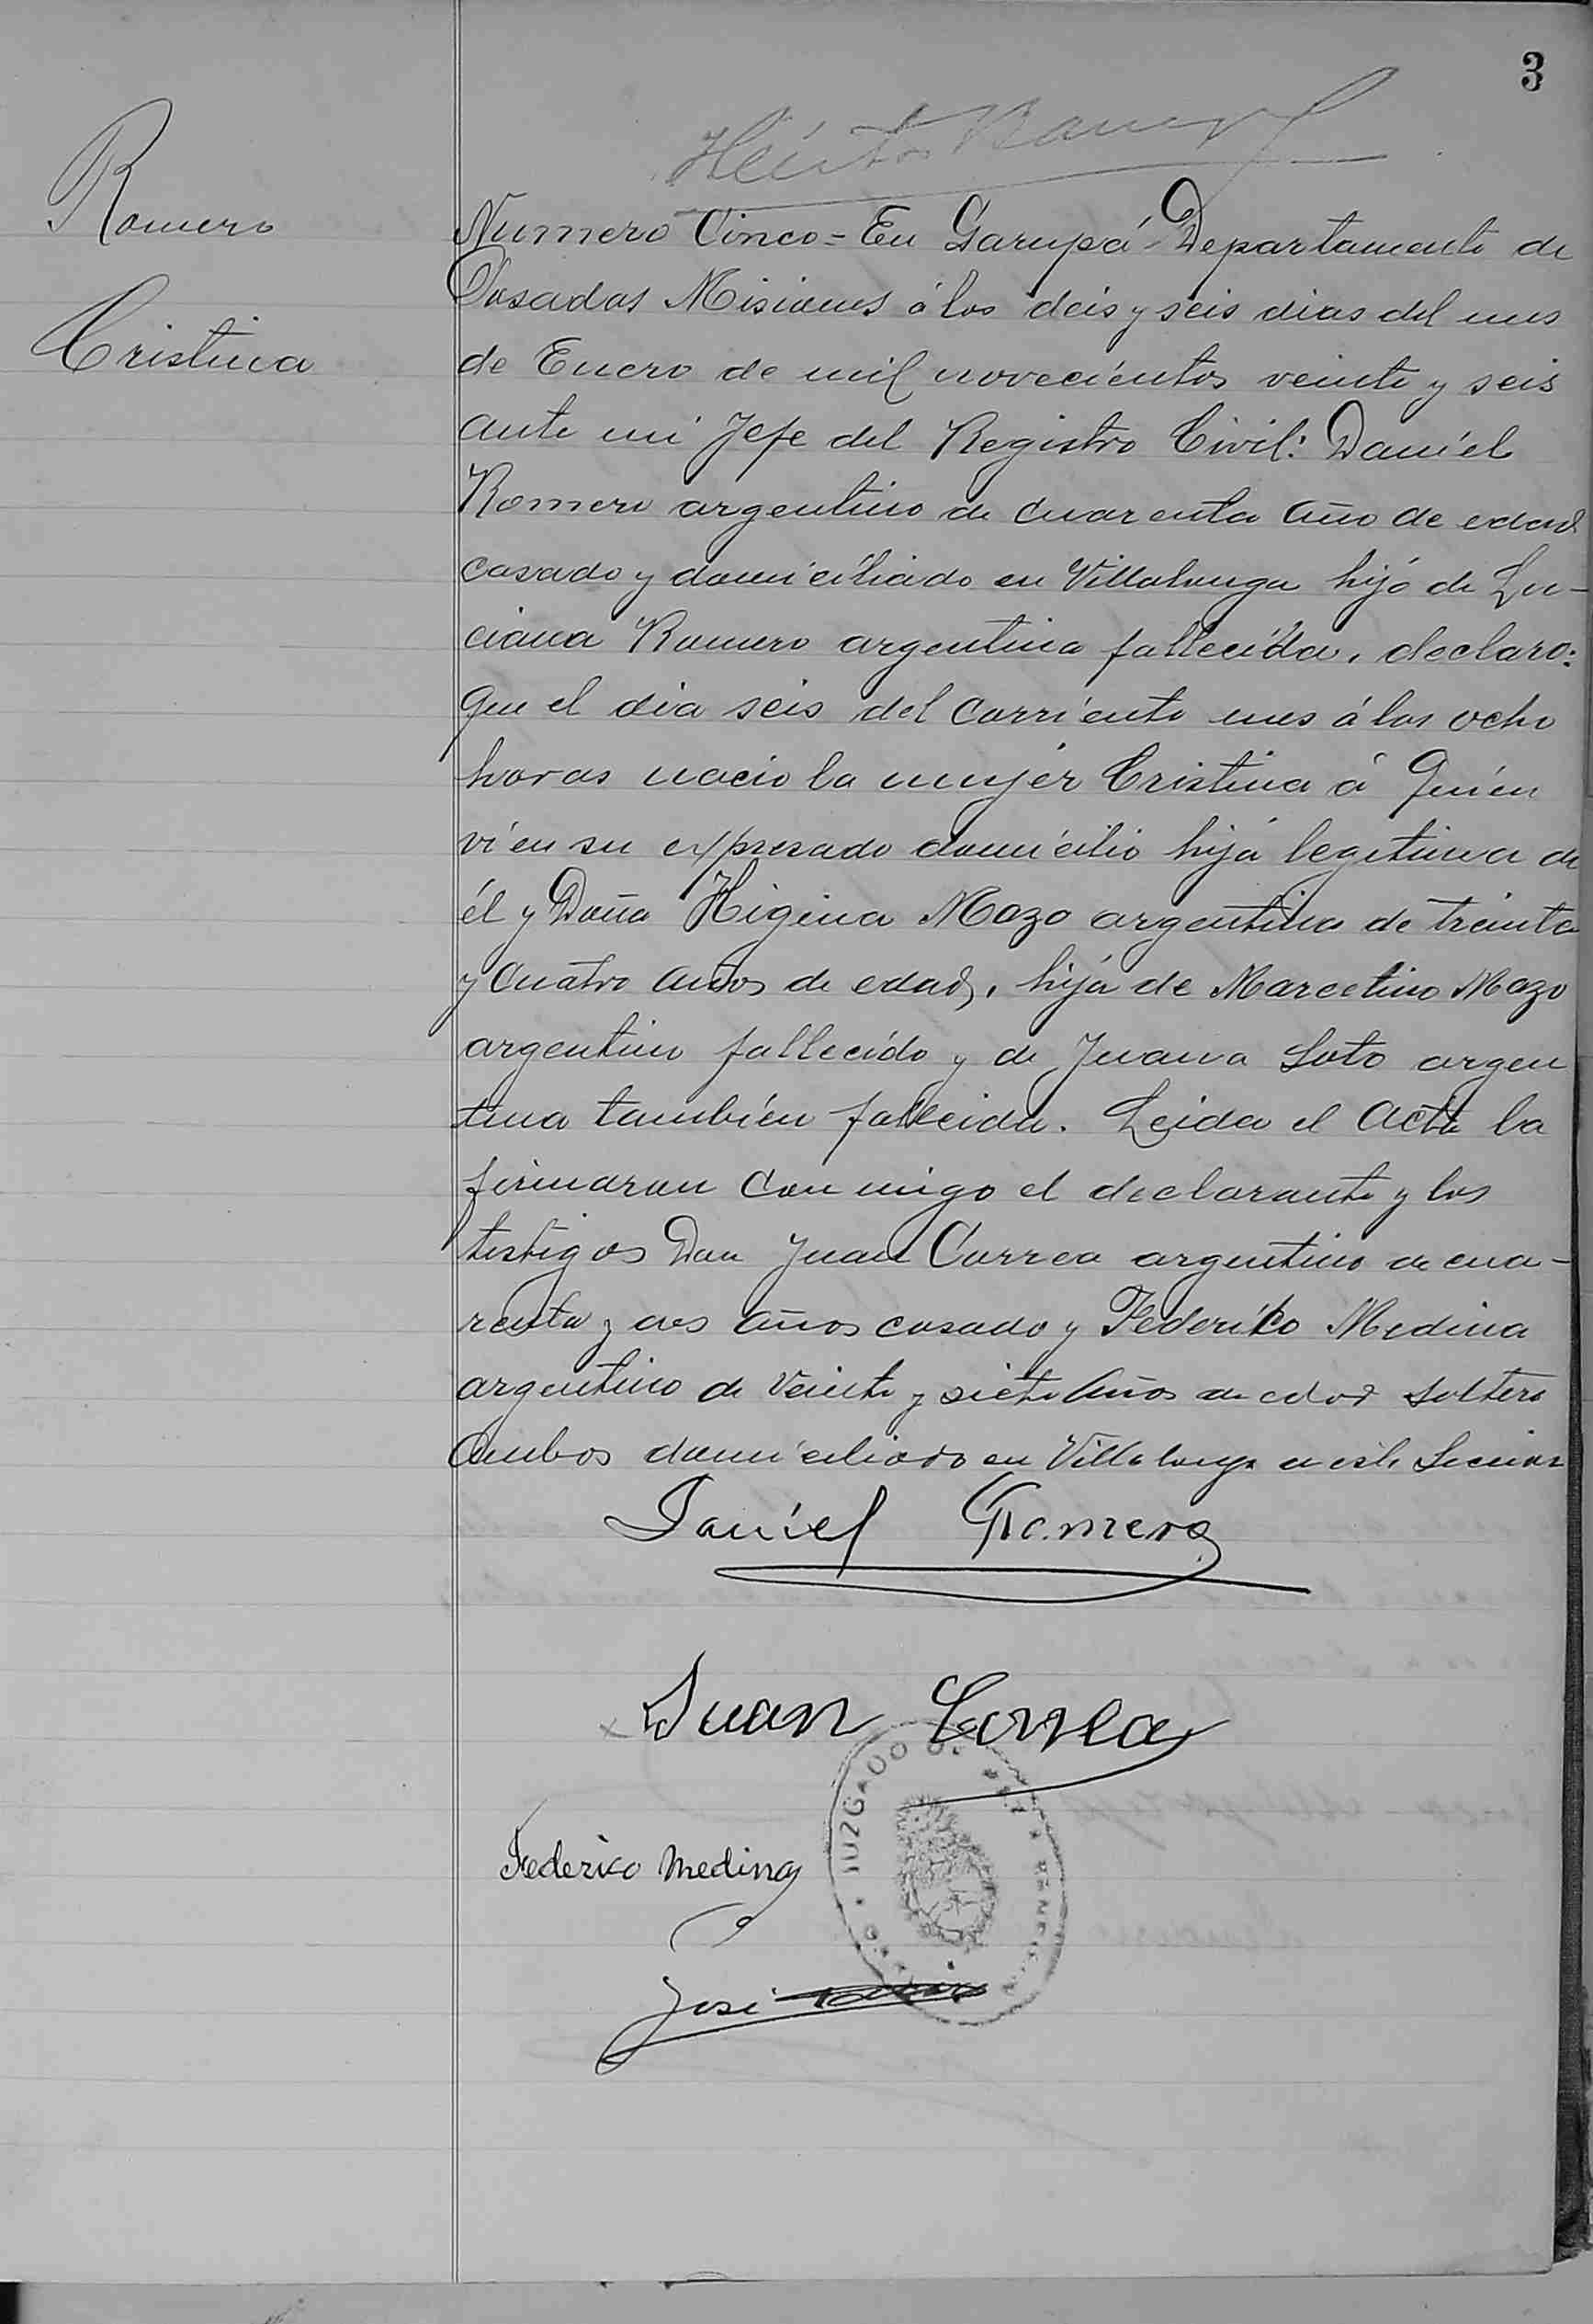 3
Romero
Cristina
Numero Cinco = En Garupá Departamento de
Posadas Misiones á los deis y seis dias del mes
de Enero de mil novecientos veinte y seis
ante mi Jefe del Registro Civil: Daniel
Romero argentino de cuarenta año de edad
casado y domiciliado en Villalonga hijo de Lu-
ciana Romero argentina fallecida, declaro:
que el dia seis del corriente mes á las ocho
horas nacio la mujer Cristina á quien
ví en su expresado domicilio hija legitima de
él y Doña Higina Mazo argentina de treinta
y cuatro años de edad, hija de Marcelino Mazo
argentino fallecido y de Juana Soto argen
tina también fallecida. Leida el Acta la
firmaron con migo el declarante y los
testigos Don Juan Correa argentino de cua-
renta y dos años casado y Federico Medina
argentino de veinte y siete Años de edad soltero
Ambos domiciliado en Villalonga
Daniel Romero
Juan Correa
JUZGADO
Federico Medina
José